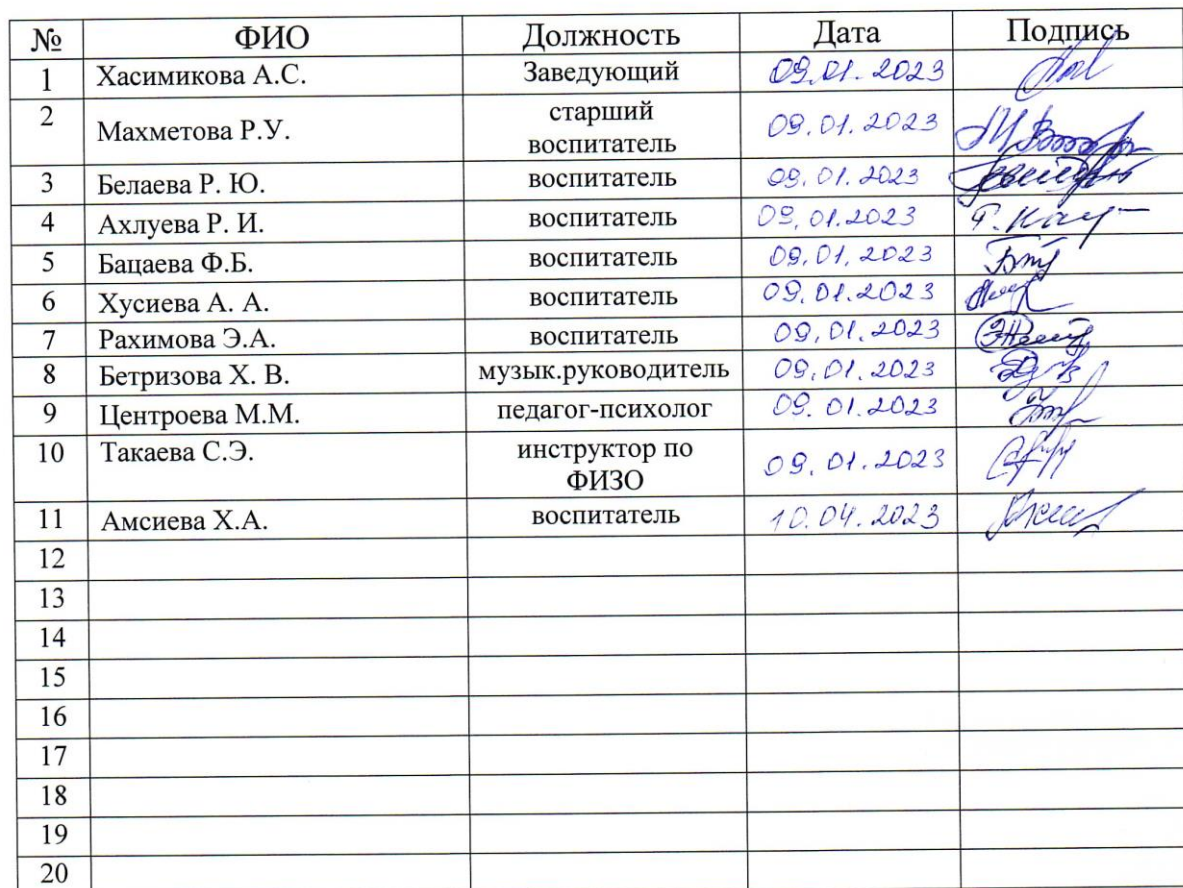 № ФИО Должность Дата Подпись
1 Хасимикова А.С. Заведующий 09.01.2023
2 Махметова Р.У. старший
воспитатель 09.01.2023
3 Белаева Р. Ю. воспитатель 09.01.2023
4 Ахлуева Р. И. воспитатель 09.01.2023
5 Бацаева Ф.Б. воспитатель 09.01.2023
6 Хусиева А. А. воспитатель 09.01.2023
7 Рахимова Э.А. воспитатель 09.01.2023
8 Бетризова Х. В. музык.руководитель 09.01.2023
9 Центроева М.М. педагог-психолог 09.01.2023
10 Такаева С.Э. инструктор по
ФИЗО 09.01.2023
11 Амсиева Х.А. воспитатель 10.04.2023
12
13
14
15
16
17
18
19
20